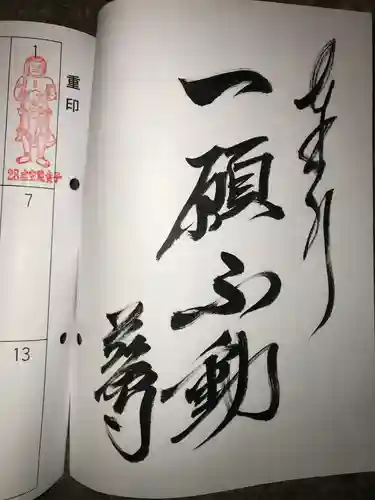 奉拝
一願不動
尊
重印
1
7
13